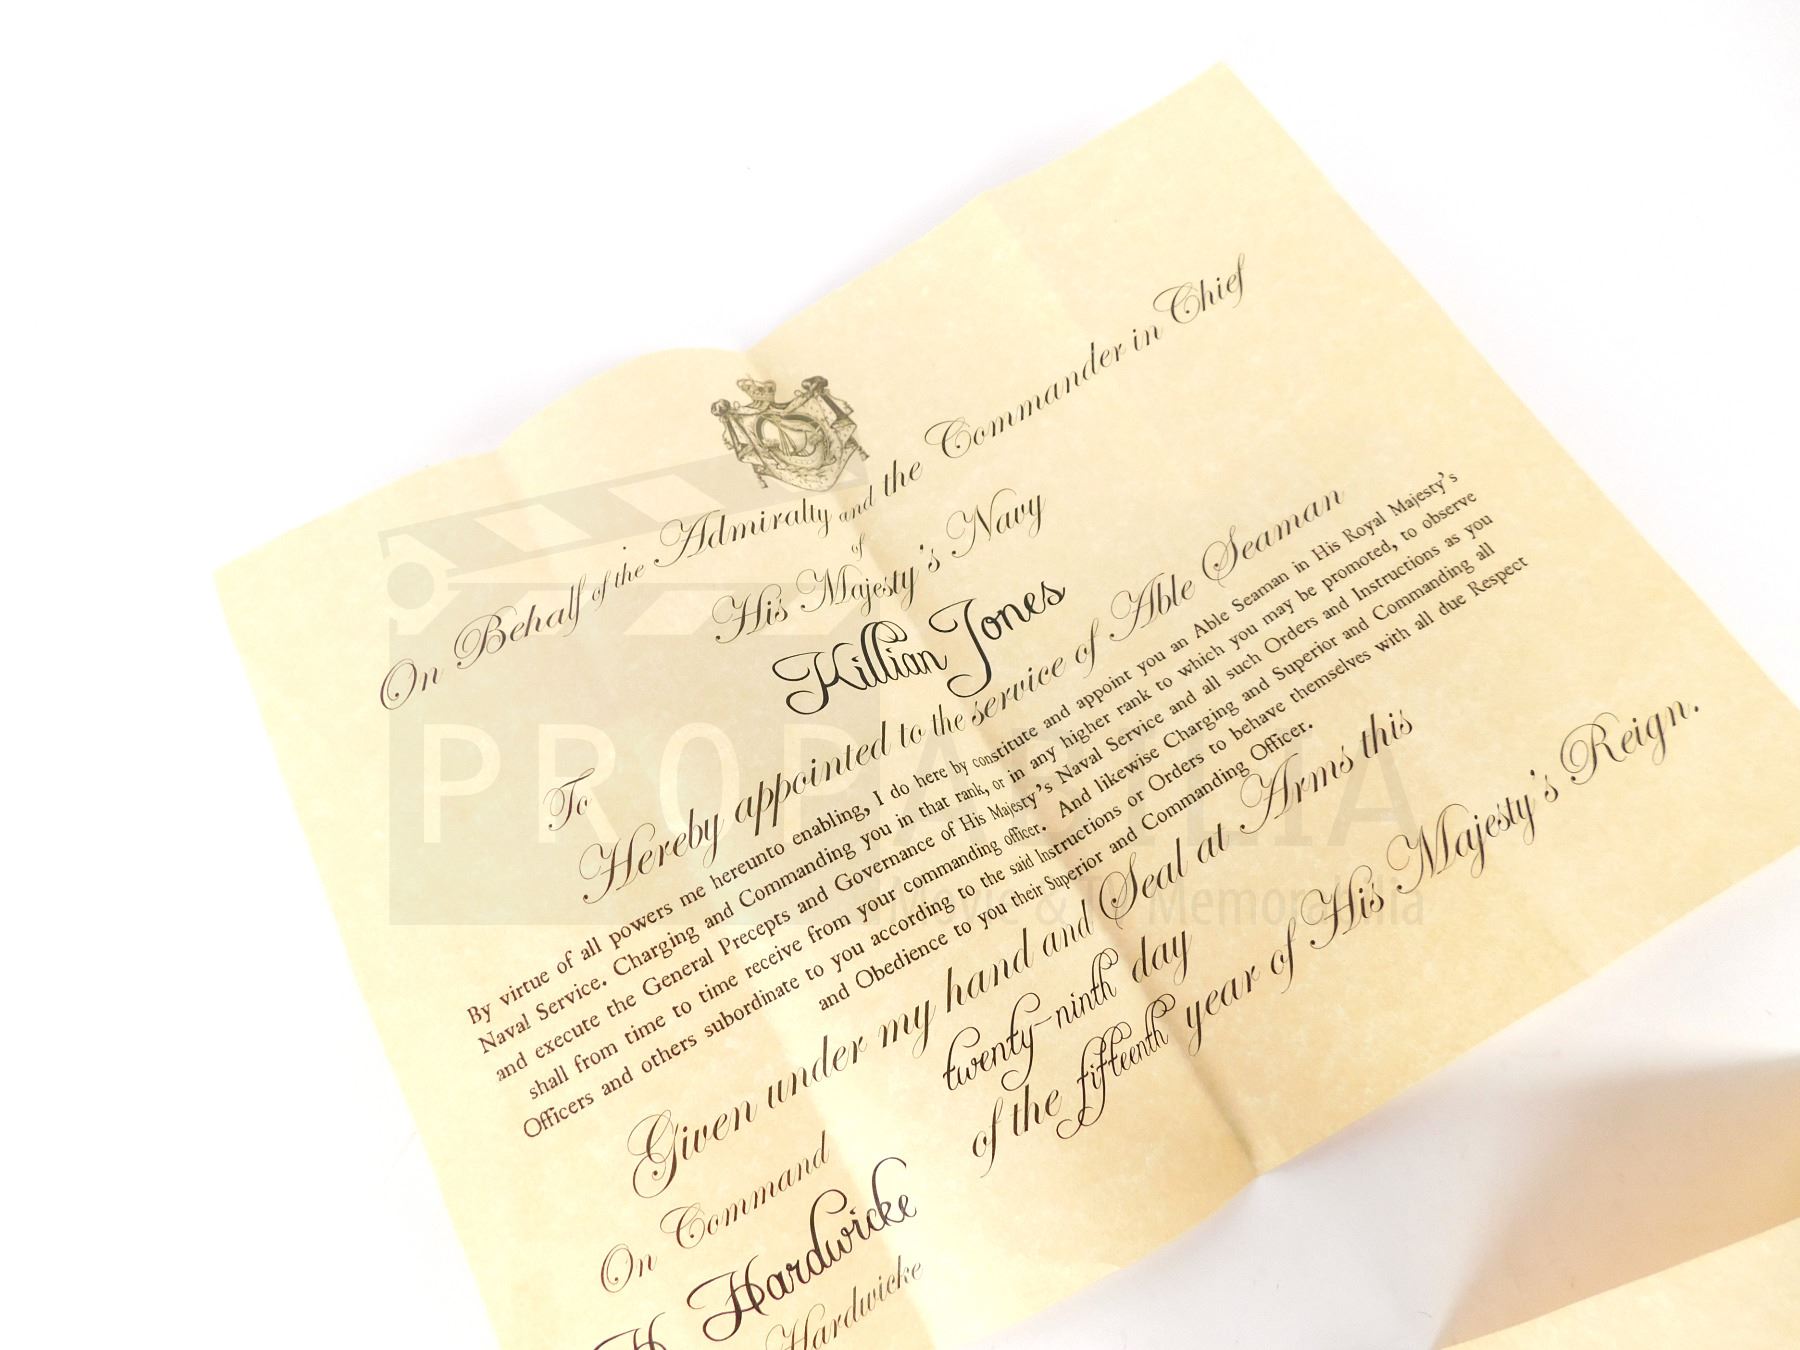 On Behalf of the Admiralty and the Commander in Chief
of
His Majesty's Navy
To
Killian Jones
Hereby appointed to the service of Able Seaman
By virtue of all powers me hereunto enabling, I do here by constitute and appoint you an Able Seaman in His Royal Majesty's
Naval Service. Charging and Commanding you in that rank, or in any higher rank to which you may be promoted, to observe
and execute the General Precepts and Governance of His Majesty's Naval Service and all such Orders and Instructions as you
shall from time to time receive from your commanding officer. And likewise Charging and Superior and Commanding all
Officers and others subordinate to you according to the said Instructions or Orders to behave themselves with all due Respect
and Obedience to you their Superior and Commanding Officer.
Given under my hand and Seal at Arms this
twenty-ninth day
of the fifteenth year of His Majesty's Reign.
On Command
H. Hardwicke
Hardwicke
PROPABILIA
Movie & TV Memorabilia